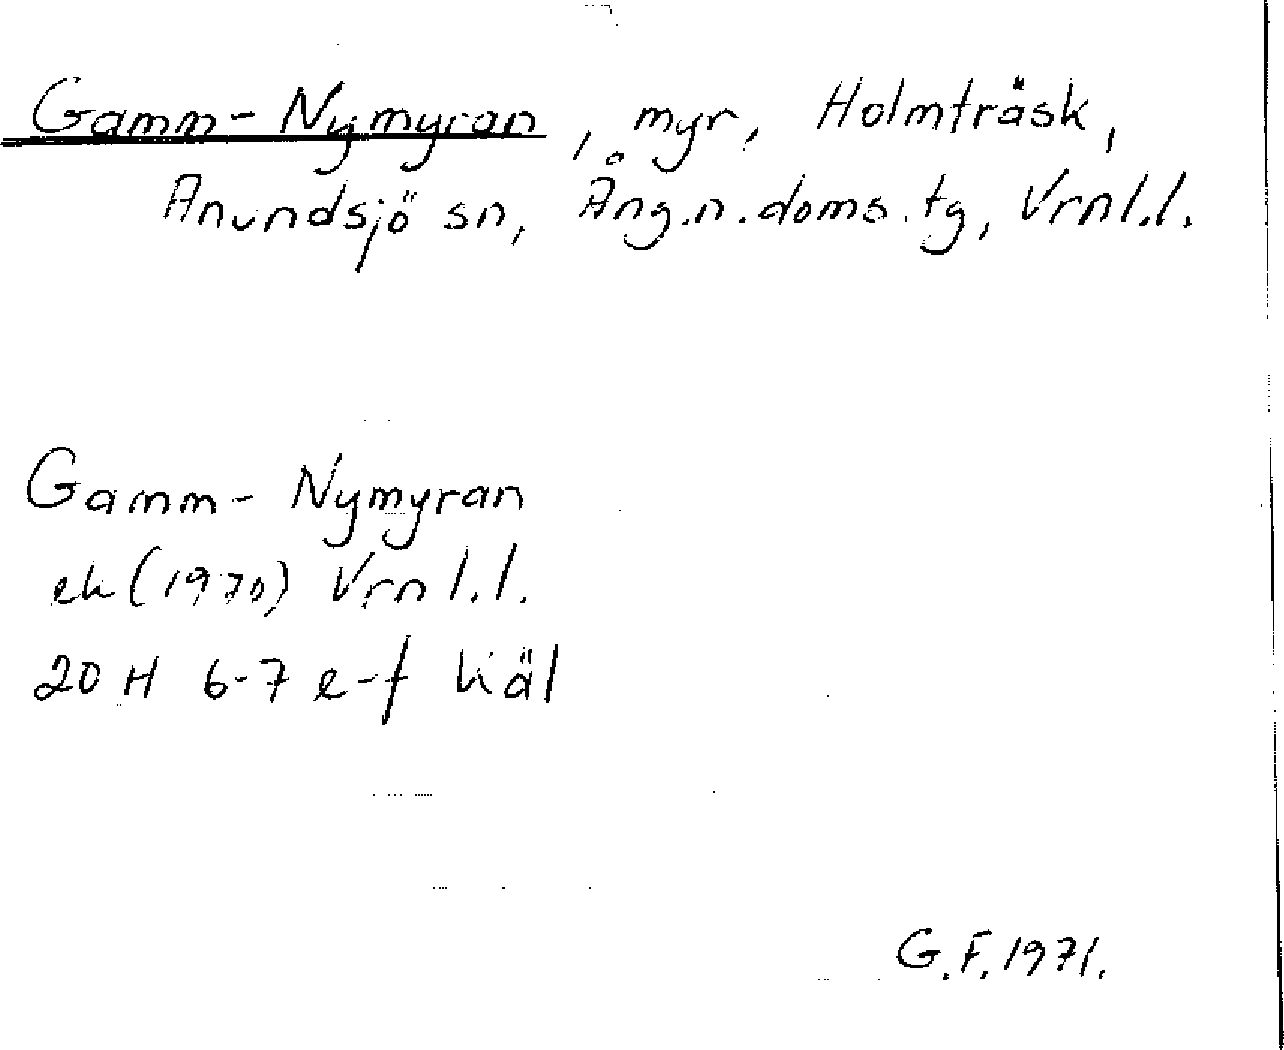 Gamm-Nymyran, myr, Holmträsk,
Anundsjö sn, Ång.n.doms.tg, Vrnl.l.
Gamm-Nymyran
ek (1970) Vrnl.l.
20 H 6-7 e-f Käl
G.F. 1971.